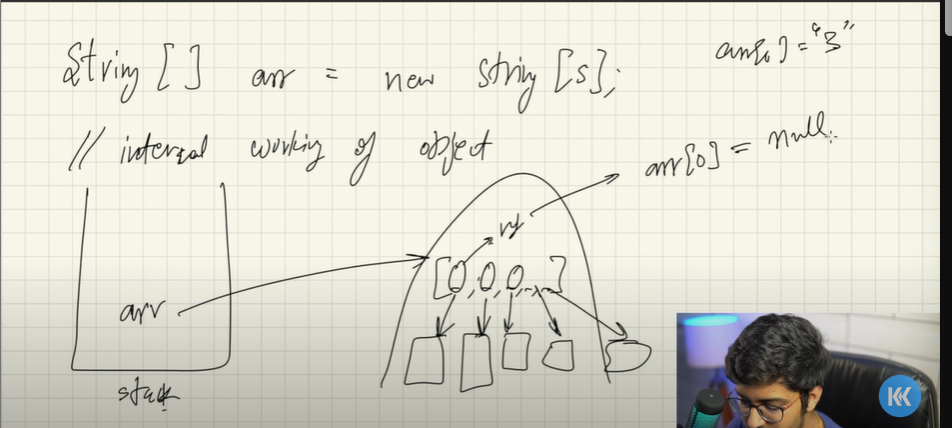 String [ ] arr = new string [5];
arr[0] = "3"
// internal working of object
arr[0] = null;
ref
[0,0,0,-,-]
arr
stack
KK